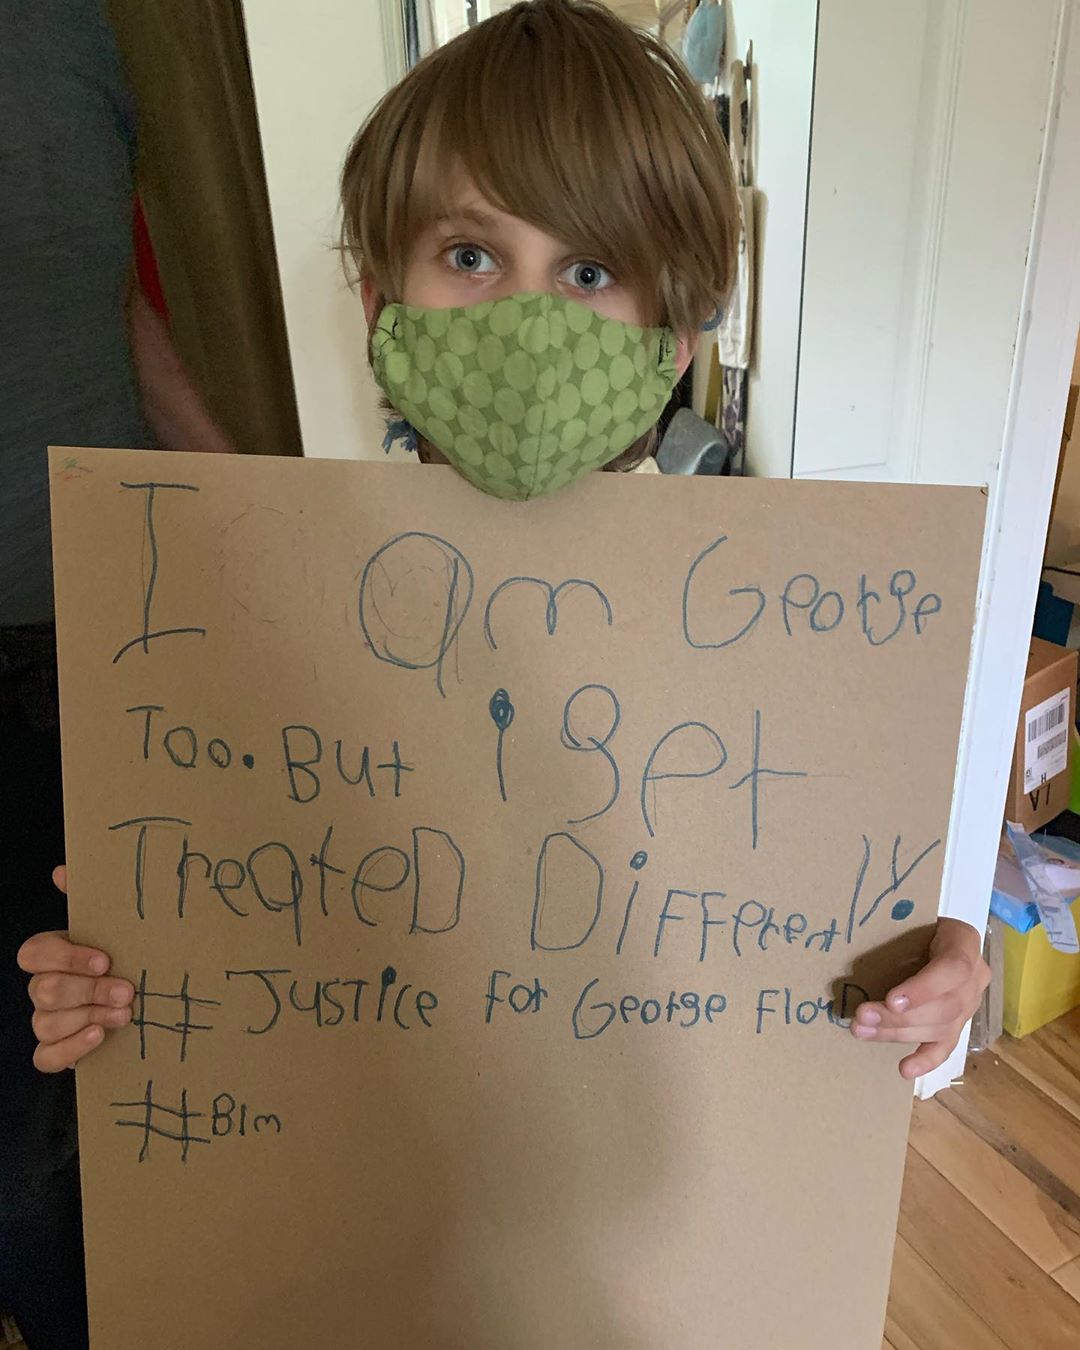 I am George
Too. But i get
TreateD DiFFerent!!
# Justice For George FloyD
#Blm